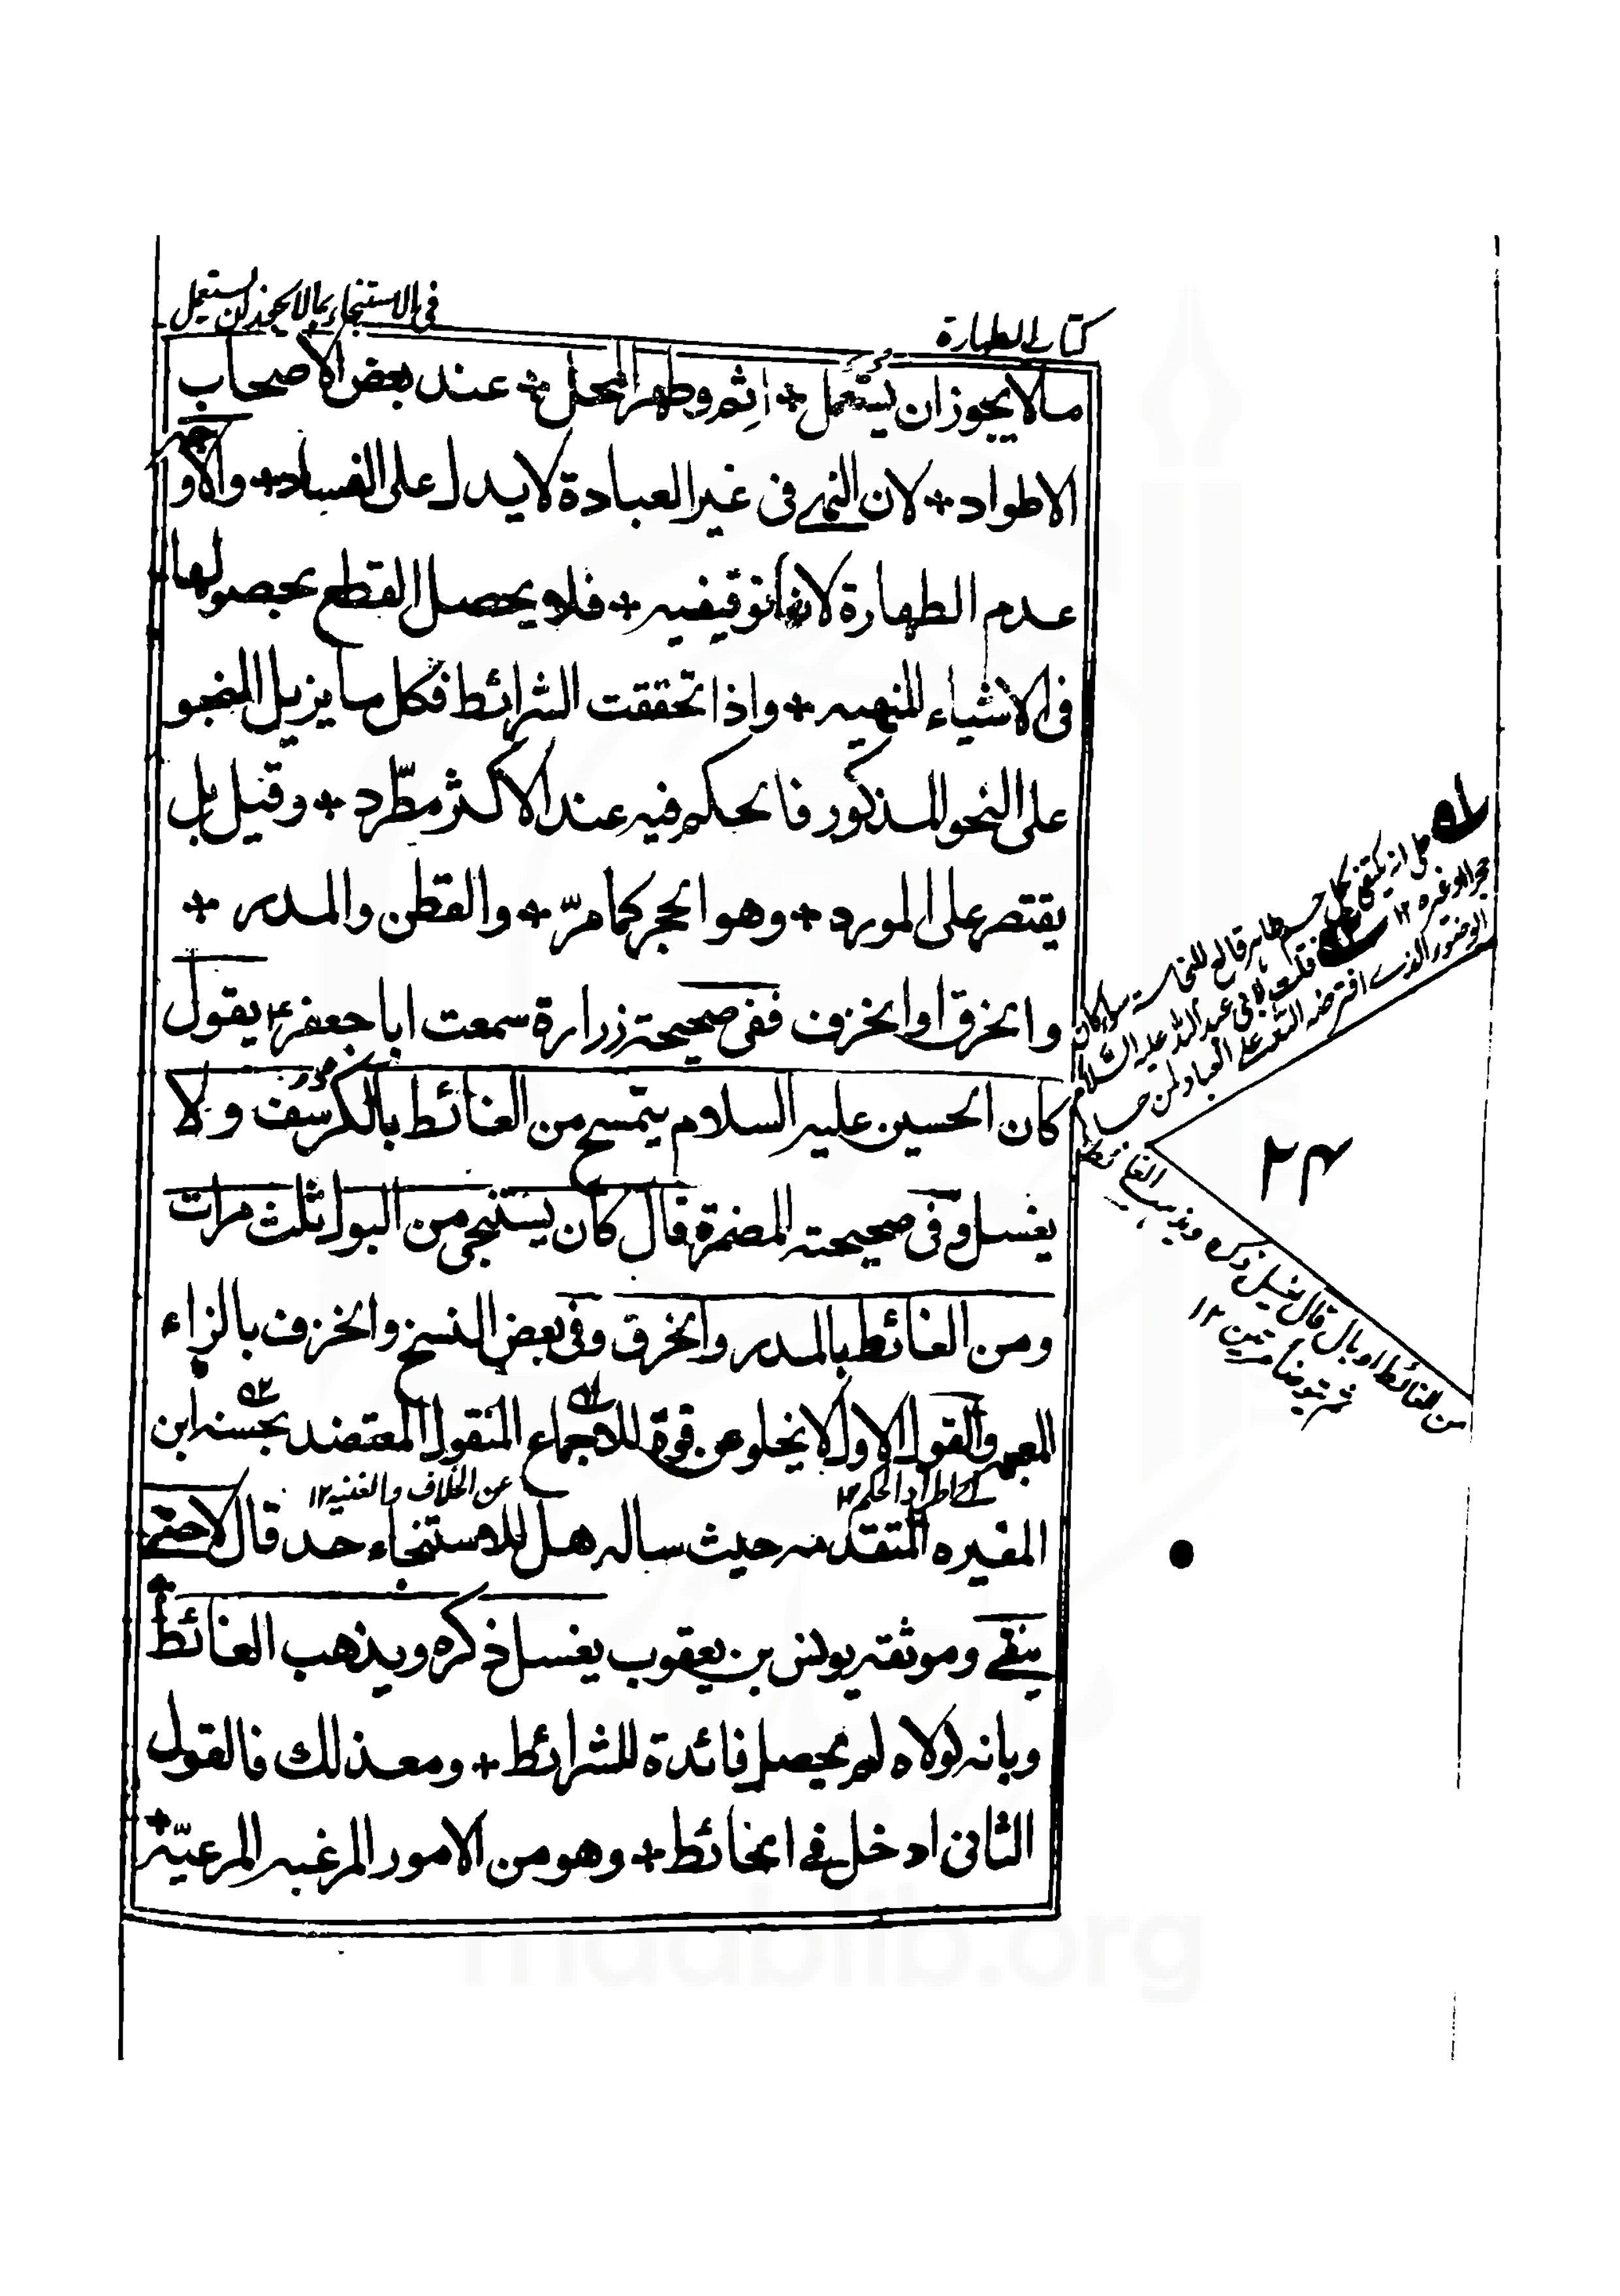 كتاب الطهارة
في الاستنجاء بما لا يجوز ان يستعمل
ما لا يجوز ان يستعمل + اثم وطهر المحل + عند بعض الاصحاب
الاطواد + لان النهي في غير العبادة لا يدل على الفساد + والاو
عدم الطهارة لانها توقيفيه + فلا يحصل القطع بحصولها
في الاشياء المنهيه + واذا تحققت الشرائط فكل ما يزيل النجو
على النحو المذكور فالحكم فيه عند الاكثر مطّرد + وقيل بل
يقتصر على المورد + وهو الحجر كما مرّ + والقطن والمدر +
والخرق او الخزف ففي صحيحة زرارة سمعت ابا جعفر ع يقول
كان الحسين عليه السلام يتمسح من الغائط بالكرسف ولا
يغسل وفي صحيحته المضمرة قال كان يستنجي من البول ثلث مرات
ومن الغائط بالمدر والخرق وفي بعض النسخ والخزف بالزاء
المعجمه والقول الاول لا يخلو عن قوة للاجماع المنقول المعتضد بحسنه ابن
اي اطراد الحكم ١٢
عن الخلاف والغنيه ١٢
المغيره المتقدمه حيث ساله هل للاستنجاء حد قال لا حتى
ينقي وموثقه يونس بن يعقوب يغسل ذكره ويذهب الغائط
وبانه لولاه لم يحصل فائدة للشرائط + ومع ذلك فالقول
الثاني ادخل في الحائط + وهو من الامور المرغبه المرعيّة +
على انه يكتفي بكل جسم طاهر قالع للنجاسة سواء كان
حجرا او غيره ١٢ قلت لابي عبد الله عليه السلام
الوضوء الذي افترضه الله على العباد لمن جاء
من الغائط او بال قال يغسل ذكره ويذهب الغائط
ثم يتوضأ مرتين ١٢
٢٤